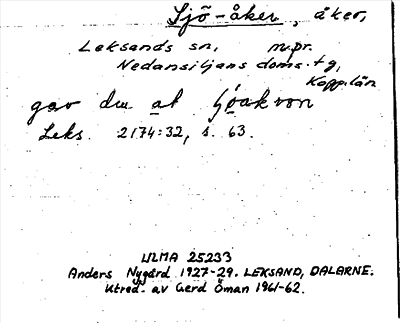 Sjö-åker, åker,
Leksands sn, n.pr.
Nedansiljans doms.tg,
Kopp.län
gav du at
Leks. 2174:32, s. 63.
ULMA 25233
Anders Nygård 1927-29. LEKSAND, DALARNE.
Utred. av Gerd Öman 1961-62.